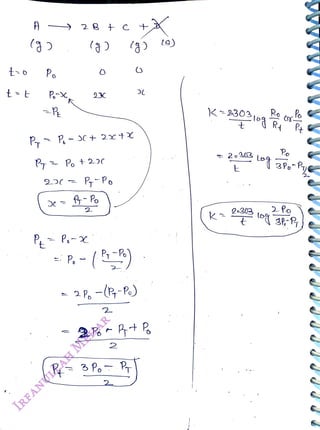 A ⟶ 2B + C + D
(g) (g) (g) (s)
t=0 P₀ 0 0
t=t P₀-x 2x x
=Pt
P_T = P₀-x+2x+x
P_T = P₀+2x
2x = P_T-P₀
x = (P_T-P₀)/2
Pt = P₀-x
= P₀-((P_T-P₀)/2)
= (2P₀-(P_T-P₀))/2
= (2P₀-P_T+P₀)/2
Pt = (3P₀-P_T)/2
K = 2.303/t log R₀/Rt or P₀/Pt
= 2.303/t log P₀/(3P₀-P_T/2)
K = 2.303/t log 2P₀/(3P₀-P_T)
IRFANULLAH MEHAR